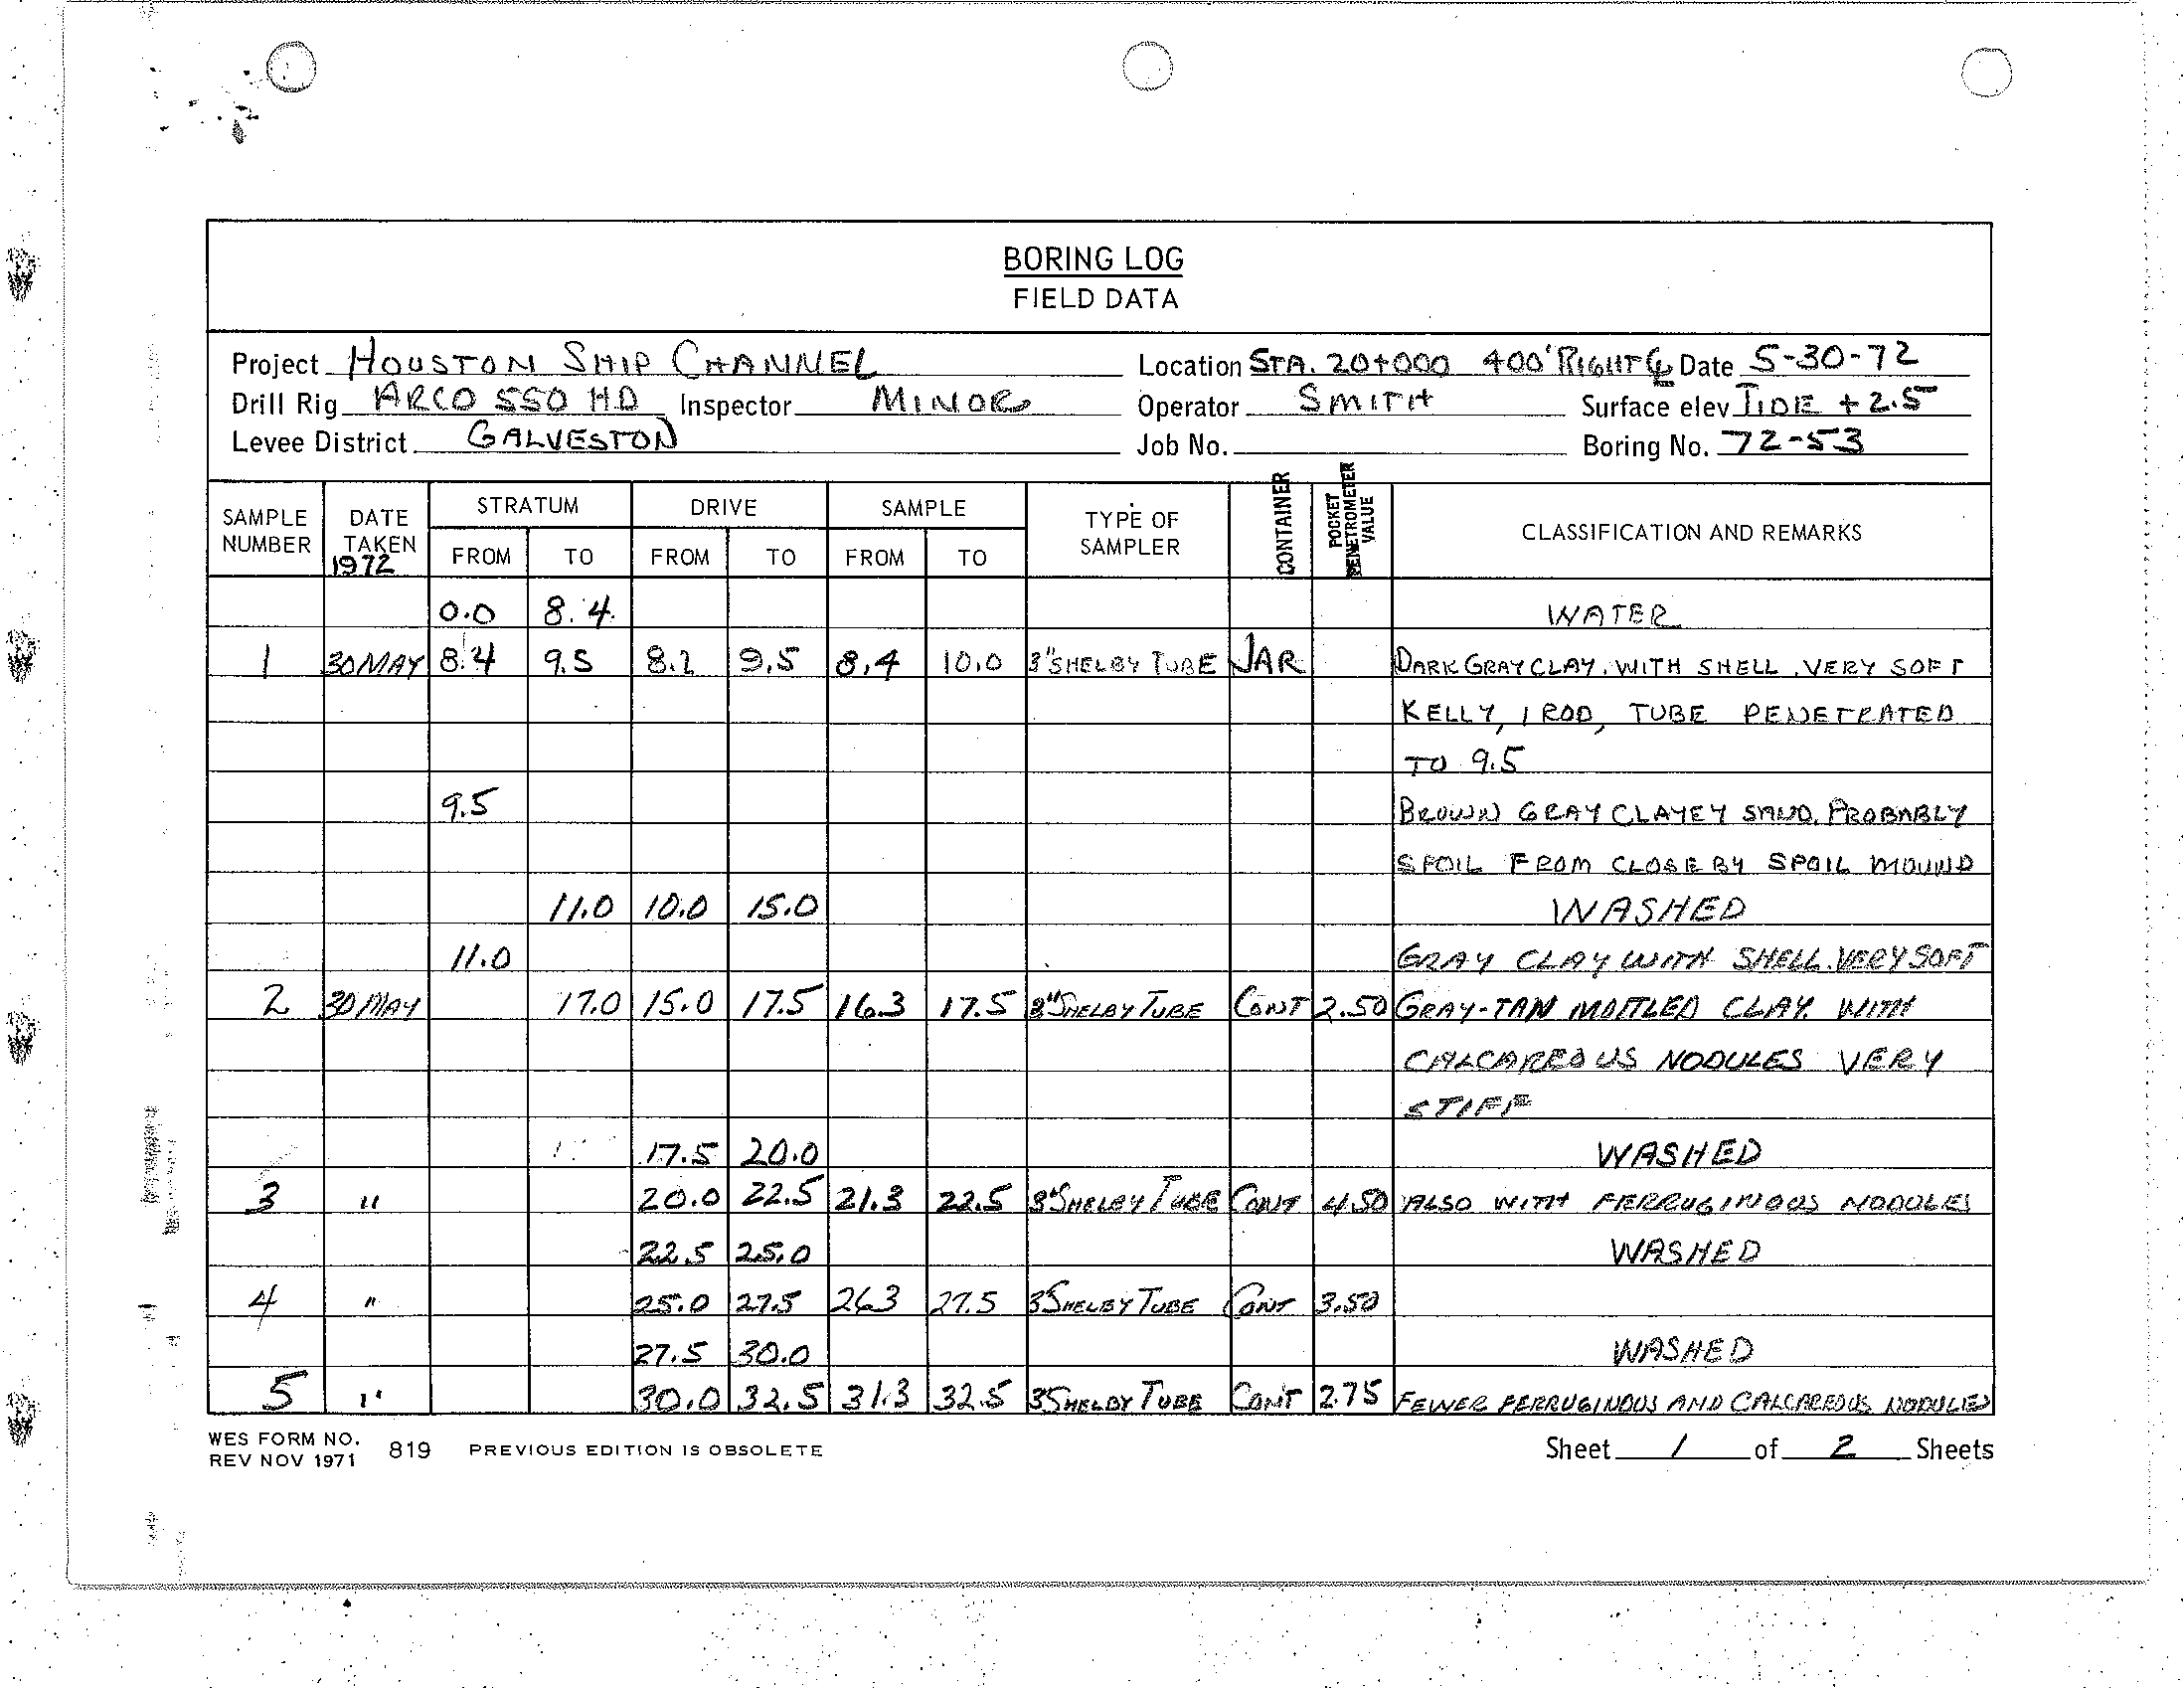 BORING LOG
FIELD DATA
Project HOUSTON SHIP CHANNEL Location STA. 20+000 400' RIGHT ℄ Date 5-30-72
Drill Rig ARCO 550 HD Inspector MINOR Operator SMITH Surface elev TIDE +2.5
Levee District GALVESTON Job No. Boring No. 72-53
SAMPLE NUMBER DATE TAKEN 1972 STRATUM FROM TO DRIVE FROM TO SAMPLE FROM TO TYPE OF SAMPLER CONTAINER POCKET PENETROMETER VALUE CLASSIFICATION AND REMARKS
0.0 8.4 WATER
1 30 MAY 8.4 9.5 8.2 9.5 8.4 10.0 3" SHELBY TUBE JAR DARK GRAY CLAY. WITH SHELL. VERY SOFT
KELLY, 1 ROD, TUBE PENETRATED
TO 9.5
9.5 BROWN GRAY CLAYEY SAND. PROBABLY
SPOIL FROM CLOSE BY SPOIL MOUND
11.0 10.0 15.0 WASHED
11.0 GRAY CLAY WITH SHELL. VERY SOFT
2 30 MAY 17.0 15.0 17.5 16.3 17.5 3" SHELBY TUBE CONT 2.50 GRAY-TAN MOTTLED CLAY. WITH
CALCAREOUS NODULES VERY
STIFF
17.5 20.0 WASHED
3 " 20.0 22.5 21.3 22.5 3" SHELBY TUBE CONT 4.50 ALSO WITH FERRUGINOUS NODULES
22.5 25.0 WASHED
4 " 25.0 27.5 26.3 27.5 3" SHELBY TUBE CONT 3.50
27.5 30.0 WASHED
5 " 30.0 32.5 31.3 32.5 3" SHELBY TUBE CONT 2.75 FEWER FERRUGINOUS AND CALCAREOUS NODULES
WES FORM NO. 819 PREVIOUS EDITION IS OBSOLETE Sheet 1 of 2 Sheets
REV NOV 1971